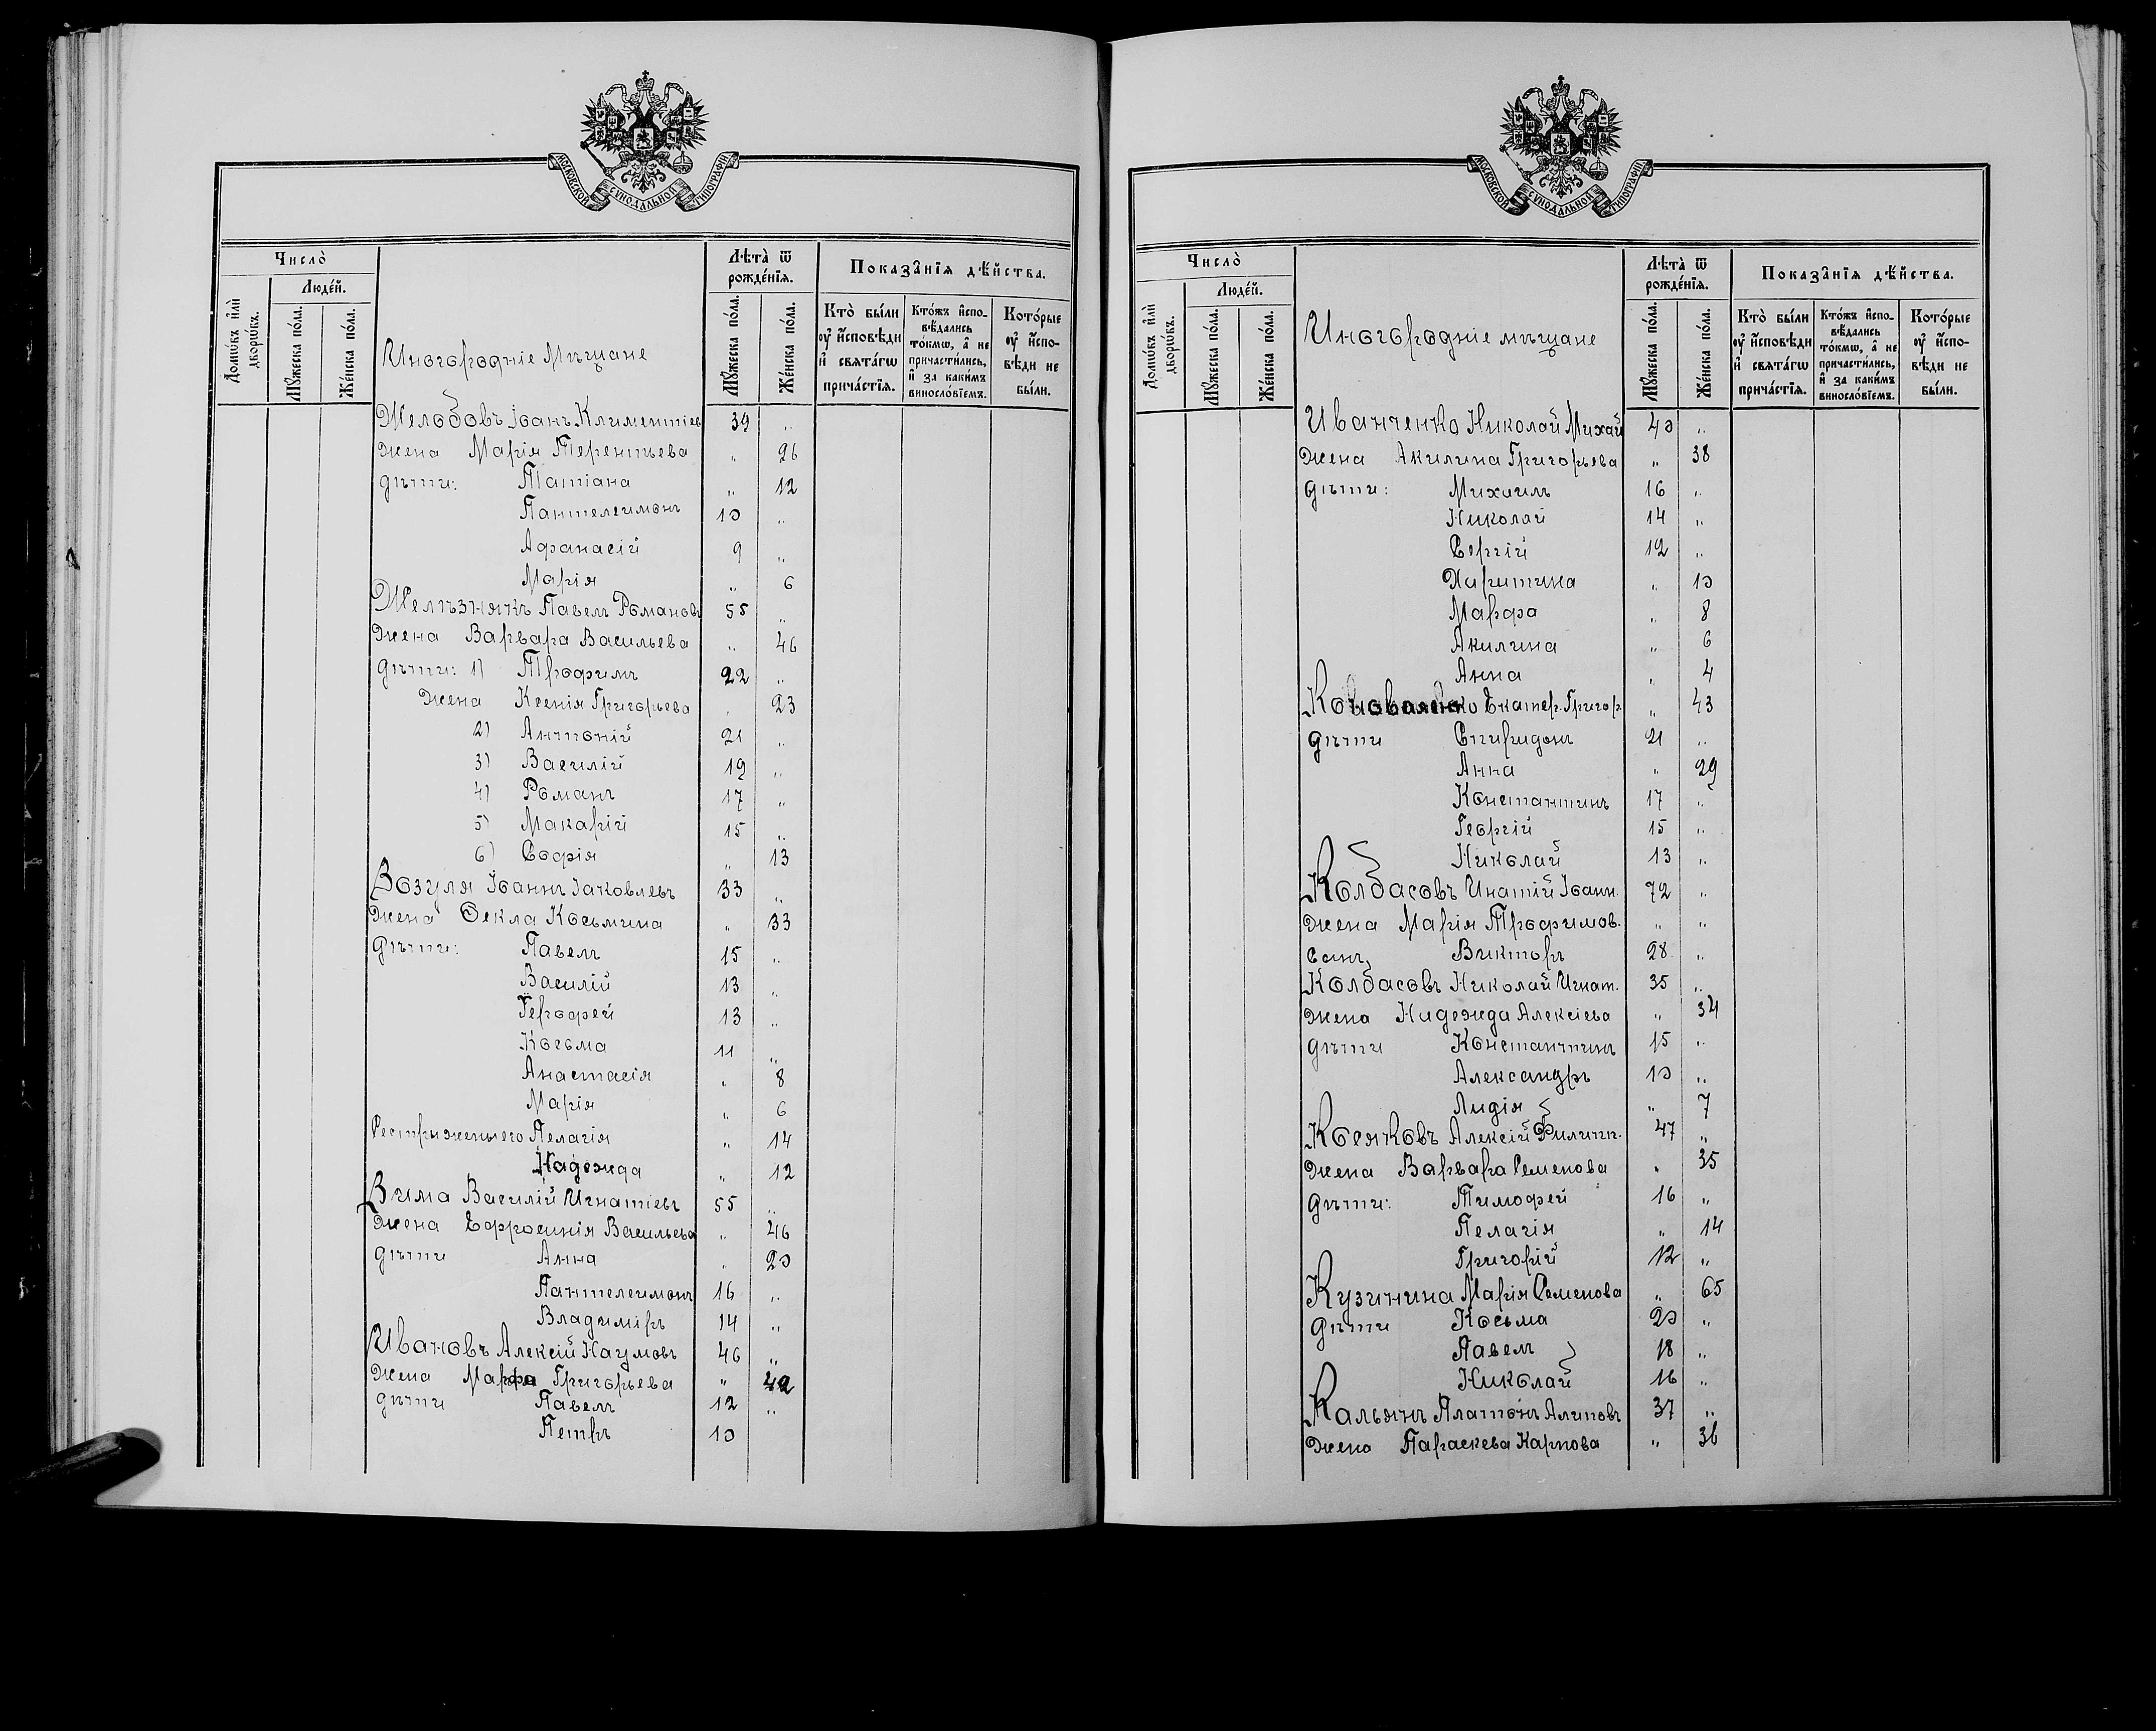 МОСКОВСКОЙ СѴНОДАЛЬНОЙ ТИПОГРАФІИ
Число̀
Людéй.
Домѡ́въ и҆лѝ дворѡ́въ.
Мꙋ́жеска по́ла.
Же́нска по́ла.
Иногородніе Мѣщане
Лѣта̀ ѿ рожде́нїѧ.
Мꙋ́жеска по́ла.
Же́нска по́ла.
Показа̑нїѧ дѣ́йства.
Кто̀ бы́ли ᲂу҆ и҆́сповѣди и҆ свѧта́гѡ прича́стїѧ.
Кто́жъ и҆спо-вѣ́дались то́кмѡ, а҆ не причасти́лись, и҆ за каки́мъ виносло́вїемъ.
Кото́рые ᲂу҆ и҆́спо-вѣди не бы́ли.
Желобовъ Іоанъ Климентіев 39 "
жена Марія Терентьева " 26
дѣти: Татіана " 12
Пантелеимонъ 10 "
Афанасій 9 "
Марія " 6
Желѣзнякъ Павелъ Романовъ 55 "
жена Варвара Васильева " 46
дѣти: 1) Трофимъ 22 "
жена Ксенія Григорьева " 23
2) Антоній 21 "
3) Василій 19 "
4) Романъ 17 "
5) Макарій 15 "
6) Софія " 13
Зозуля Іоаннъ Іаковлевъ 33 "
жена Ѳекла Косьмина " 33
дѣти: Павелъ 15 "
Василій 13 "
Герофей 13 "
Косьма 11 "
Анастасія " 8
Марія " 6
Пелагія " 14
Надежда " 12
Зима Василій Игнатіевъ 55 "
жена Ефросинія Васильева " 46
дѣти Анна " 20
Пантелеимонъ 16 "
Владиміръ 14 "
Ивановъ Алексій Наумовъ 46 "
жена Марфа Григорьева " 42
дѣти Павелъ 12 "
Петръ 10
МОСКОВСКОЙ СѴНОДАЛЬНОЙ ТИПОГРАФІИ
Число̀
Людéй.
Домѡ́въ и҆лѝ дворѡ́въ.
Мꙋ́жеска по́ла.
Же́нска по́ла.
Иногородніе мѣщане
Лѣта̀ ѿ рожде́нїѧ.
Мꙋ́жеска по́ла.
Же́нска по́ла.
Показа̑нїѧ дѣ́йства.
Кто̀ бы́ли ᲂу҆ и҆́сповѣди и҆ свѧта́гѡ прича́стїѧ.
Кто́жъ и҆спо-вѣ́дались то́кмѡ, а҆ не причасти́лись, и҆ за каки́мъ виносло́вїемъ.
Кото́рые ᲂу҆ и҆́спо-вѣди не бы́ли.
Иванченко Николай Михай 40 "
жена Акилина Григорьева " 38
дѣти: Михаилъ 16 "
Николай 14 "
Сергій 12 "
Харитина " 10
Марфа " 8
Акилина " 6
Анна " 4
Коноваленко Екатер. Григор. " 43
дѣти Спиридонъ 21 "
Анна " 29
Константинъ 17 "
Георгій 15 "
Николай 13 "
Колбасовъ Инатій Іоанн. 72 "
жена Марія Трофимов. " "
сынъ Викторъ 28 "
Колбасовъ Николай Игнат. 35 "
жена Надежда Алексіева " 34
дѣти Константинъ 15 "
Александръ 10 "
Лидія " 7
Косяковъ Алексій Филипп. 47 "
жена Варвара Семенова " 35
дѣти: Тимофей 16 "
Пелагія " 14
Григорій 12 "
Кузинина Марія Семенова " 65
дѣти Косьма 20 "
Павелъ 18 "
Николай 16 "
Кальянъ Платонъ Алиповъ 37 "
жена Параскева Карпова " 36